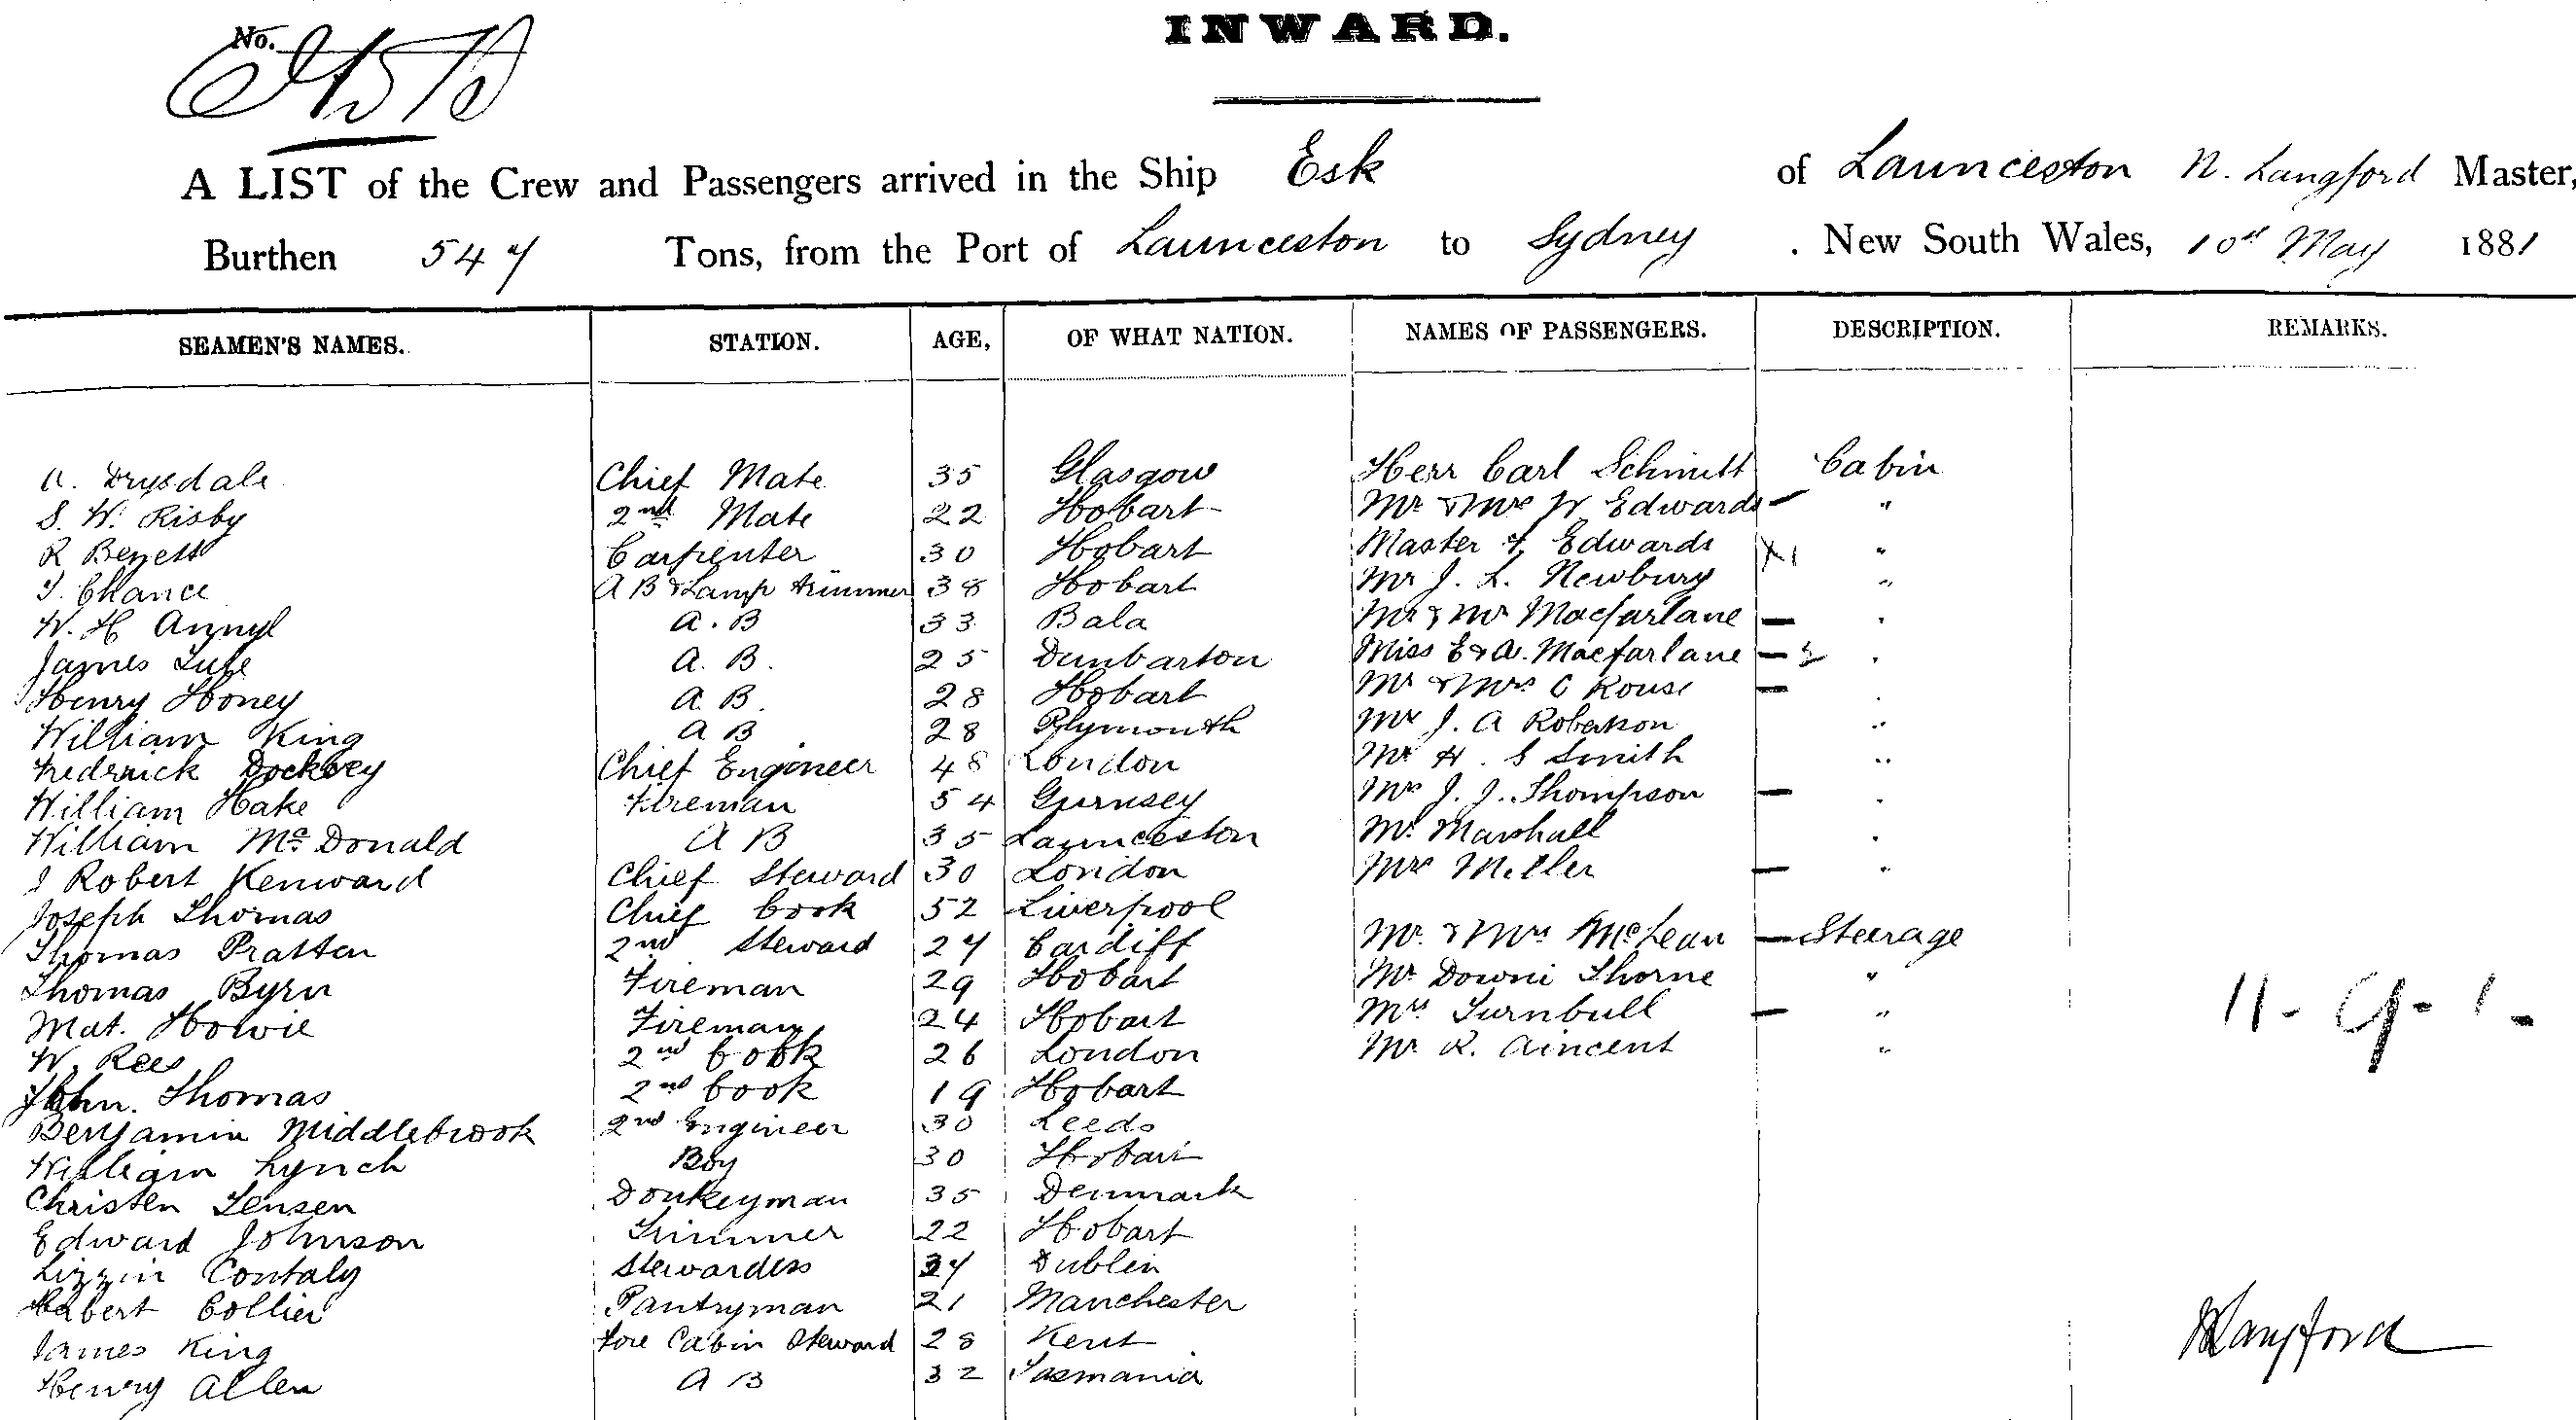 INWARD.
No.
A LIST of the Crew and Passengers arrived in the Ship Esk of Launceston N. Langford Master,
Burthen 547 Tons, from the Port of Launceston to Sydney . New South Wales, 10th May 1881
SEAMEN'S NAMES. STATION. AGE, OF WHAT NATION. NAMES OF PASSENGERS. DESCRIPTION. REMARKS.
A. Drysdale Chief Mate 35 Glasgow Herr Carl Schmitt Cabin
S. W. Risby 2nd Mate 22 Hobart Mr & Mrs W Edwards — "
R Benett Carpenter 30 Hobart Master Edwards "
T. Chance A B & Lamp trimmer 38 Hobart Mr J. L. Newbury "
W. H A. B 33 Bala Mr & Mrs Macfarlane — "
James A. B. 25 Dunbarton Miss E & A. Macfarlane — 2 "
Henry Honey A. B. 28 Hobart Mr & Mrs C Rouse — "
William King A B 28 Plymouth Mr J. A Robertson "
Fredrick Dockvey Chief Engineer 48 London Mr H. S Smith "
William Hake Fireman 54 Gurnsey Mrs J. J. Thompson — "
William Mc Donald A B 35 Launceston Mr. Marshall "
J Robert Kenward Chief Steward 30 London Mrs Miller — "
Joseph Thomas Chief Cook 52 Liverpool
Thomas Pratten 2nd Steward 27 Cardiff Mr. & Mrs McLean — Steerage
Thomas Byrn Fireman 29 Hobart Mr Downi Thorne "
Mat. Howie Fireman 24 Hobart Mrs Turnbull — "
W. Rees 2nd Cook 26 London Mr R. Aincent "
11-9-1-
John. Thomas 2nd Cook 19 Hobart
Benjamin Middlebrook 2nd Engineer 30 Leeds
William Lynch Boy 30 Hobart
Christen Jensen Donkeyman 35 Denmark
Edward Johnson Trimmer 22 Hobart
Lizzin Contaly Stewardess 37 Dublin
Robert Collier Pantryman 21 Manchester
James King Fore Cabin Steward 28 Kent
NLangford
Henry Allen A B 32 Tasmania